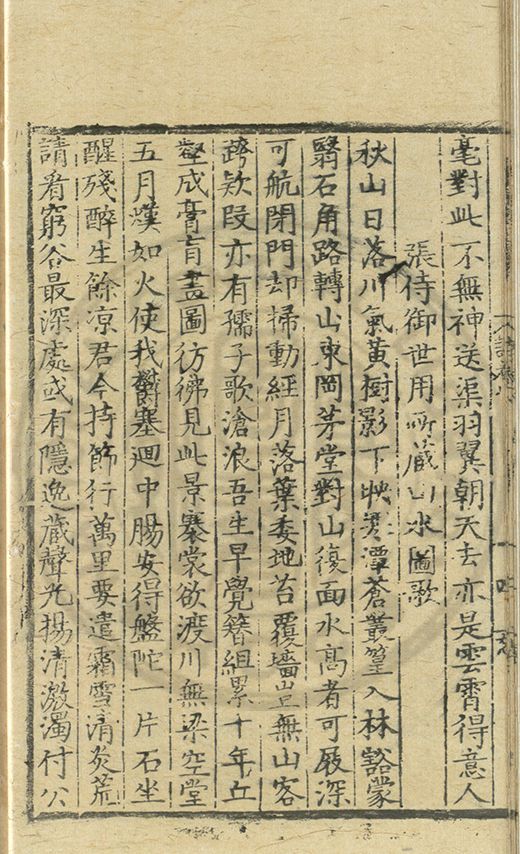 毫對此不無神送渠羽翼朝天去亦是雲霄得意人
張侍御世用所藏山水圖歌
秋山日落川氣黃樹影下映寒潭蒼叢篁入林豁蒙
翳石角路轉山東岡芽堂對山復面水高者可屐深
可航閉門却掃動經月落葉委地苔覆墻豈無山客
跨欵段亦有孺子歌滄浪吾生早覺簪組累十年丘
壑成膏肓畫圖彷彿見此景褰裳欲渡川無梁空堂
五月熯如火使我欝塞迴中腸安得盤陀一片石坐
醒殘醉生餘凉君今持節行萬里要遣霜雪清炎荒
請看窮谷最深處或有隱逸藏聲光揚清激濁付公